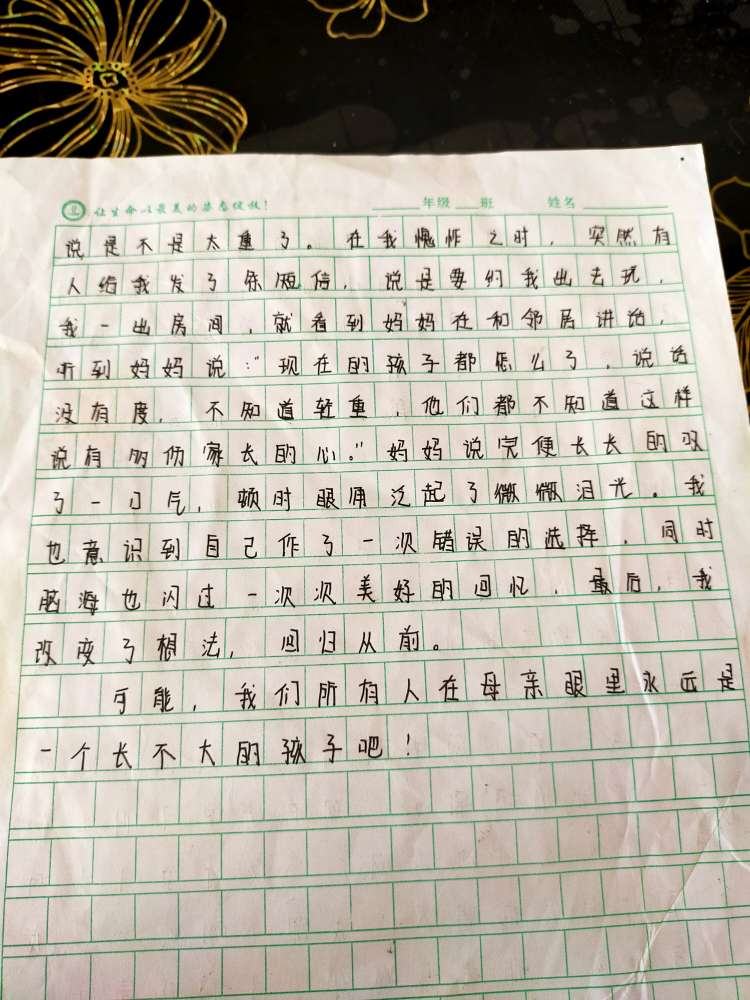 让生命以最美的姿态绽放!
年级 班 姓名
说是不是太重了。在我愧怍之时,突然有
人给我发了条短信,说是要约我出去玩,
我一出房间,就看到妈妈在和邻居讲话,
听到妈妈说:"现在的孩子都怎么了,说话
没有度,不知道轻重,他们都不知道这样
说有多伤家长的心。"妈妈说完便长长的叹
了一口气,顿时眼角泛起了微微泪光。我
也意识到自己作了一次错误的选择,同时
脑海也闪过一次次美好的回忆,最后,我
改变了想法,回归从前。
可能,我们所有人在母亲眼里永远是
一个长不大的孩子吧!